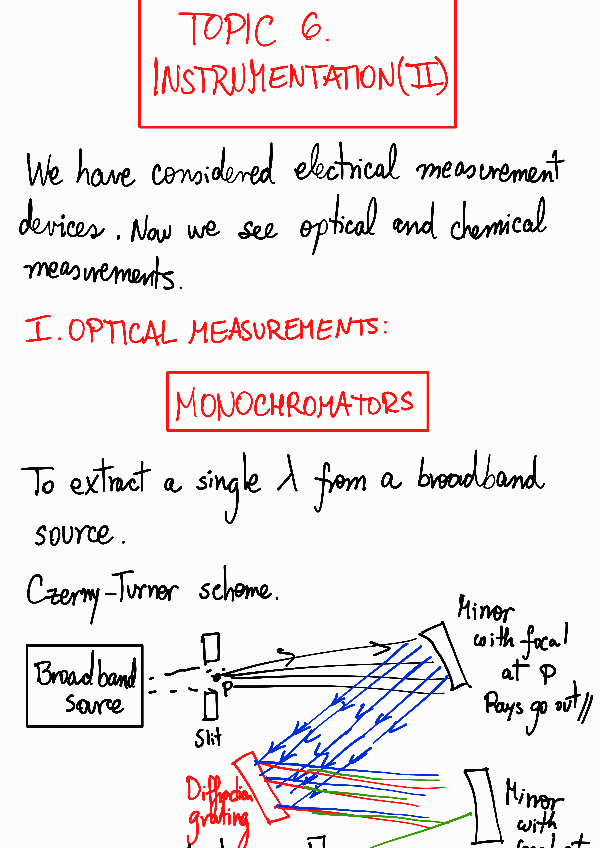 TOPIC 6.
INSTRUMENTATION(II)
We have considered electrical measurement
devices. Now we see optical and chemical
measurements.
I. OPTICAL MEASUREMENTS:
MONOCHROMATORS
To extract a single λ from a broadband
source.
Czerny-Turner scheme.
Mirror
with focal
at P
Rays go out //
Broadband
source
P
Slit
Diffraction
grating
Mirror
with